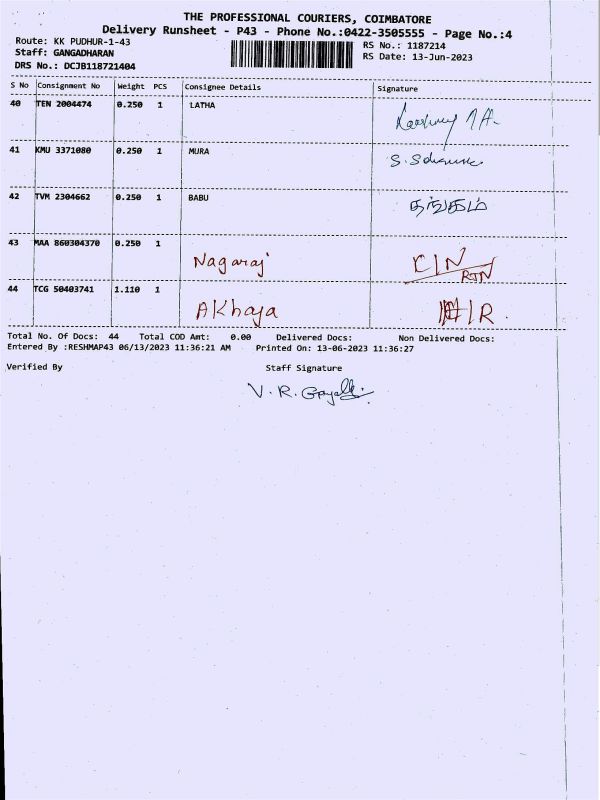 THE PROFESSIONAL COURIERS, COIMBATORE
Delivery Runsheet - P43 - Phone No.:0422-3505555 - Page No.:4
Route: KK PUDHUR-1-43
RS No.: 1187214
Staff: GANGADHARAN
RS Date: 13-Jun-2023
DRS No.: DCJB118721404
S No Consignment No Weight PCS Consignee Details Signature
40 TEN 2004474 0.250 1 LATHA
41 KMU 3371080 0.250 1 MURA
42 TVM 2304662 0.250 1 BABU தங்கம்
43 MAA 860304370 0.250 1
Nagaraj C/N RTN
44 TCG 50403741 1.110 1
AKhaja
Total No. Of Docs: 44 Total COD Amt: 0.00 Delivered Docs: Non Delivered Docs:
Entered By :RESHMAP43 06/13/2023 11:36:21 AM Printed On: 13-06-2023 11:36:27
Verified By Staff Signature
V. R.